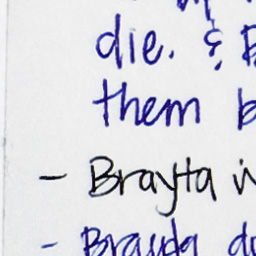 die. & B
them b
- Brayta i
- Brayda d